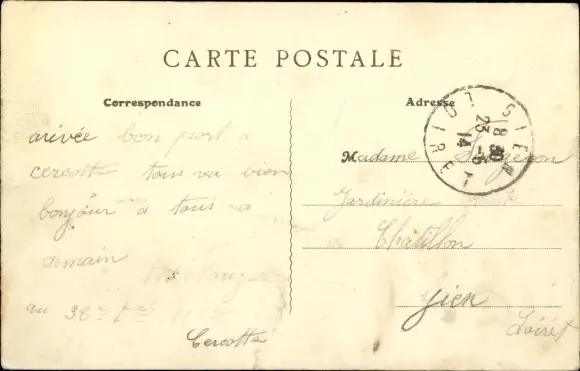 CARTE POSTALE
Correspondance
Adresse
arivée bon port a
cercotte tous va bien
bonjour a tous a
demain
au 38e
Cercotte
Madame
Jardinière
de Chatillon
Gien
Loiret
GIEN
LOIRET
8 30
23 -5
14